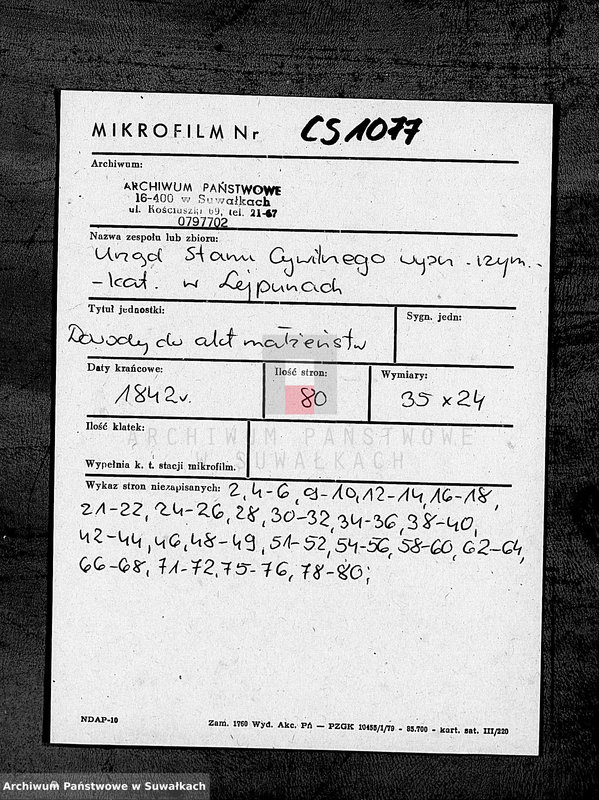 MIKROFILM Nr CS 1077
Archiwum:
ARCHIWUM PAŃSTWOWE
16-400 w Suwałkach
ul. Kościuszki 69, tel. 21-67
0797702
Nazwa zespołu lub zbioru:
Urząd Stanu Cywilnego wyzn. rzym.-
-kat. w Lejpunach
Tytuł jednostki:
Sygn. jedn:
Dowody do akt małżeństw
Daty krańcowe:
Ilość stron:
Wymiary:
1842 r.
80
35 x 24
Ilość klatek:
ARCHIWUM PAŃSTWOWE
W SUWAŁKACH
Wypełnia k. t. stacji mikrofilm.
Wykaz stron niezapisanych: 2, 4-6, 9-10, 12-14, 16-18,
21-22, 24-26, 28, 30-32, 34-36, 38-40,
42-44, 46, 48-49, 51-52, 54-56, 58-60, 62-64,
66-68, 71-72, 75-76, 78-80;
NDAP-10
Zam. 1760 Wyd. Akc. Pń — PZGK 10455/1/79 - 85.700 - kart. sat. III/220
Archiwum Państwowe w Suwałkach